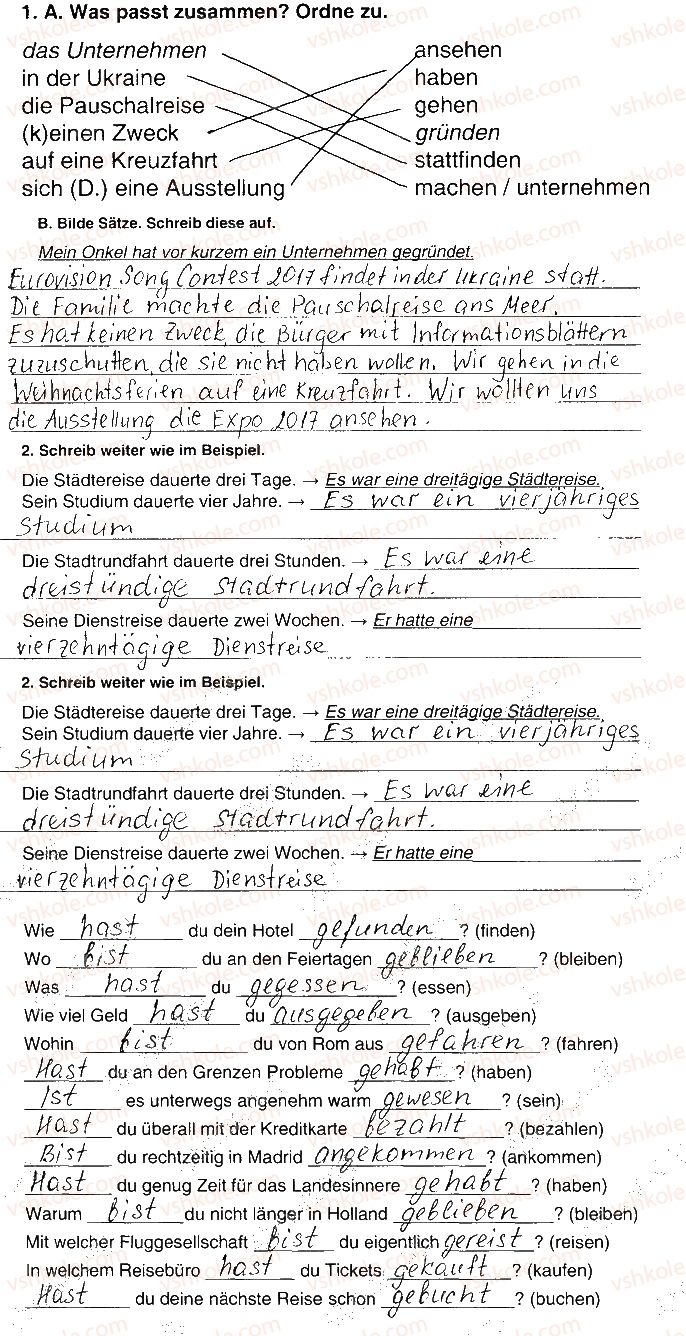 1. A. Was passt zusammen? Ordne zu.
das Unternehmen ansehen
in der Ukraine haben
die Pauschalreise gehen
(k)einen Zweck gründen
auf eine Kreuzfahrt stattfinden
sich (D.) eine Ausstellung machen / unternehmen
B. Bilde Sätze. Schreib diese auf.
Mein Onkel hat vor kurzem ein Unternehmen gegründet.
Eurovision Song Contest 2017 findet in der Ukraine statt.
Die Familie machte die Pauschalreise ans Meer.
Es hat keinen Zweck, die Bürger mit Informationsblättern
zuzuschutten, die sie nicht haben wollen. Wir gehen in die
Weihnachtsferien auf eine Kreuzfahrt. Wir wollten uns
die Ausstellung die Expo 2017 ansehen.
2. Schreib weiter wie im Beispiel.
Die Städtereise dauerte drei Tage. → Es war eine dreitägige Städtereise.
Sein Studium dauerte vier Jahre. → Es war ein vierjähriges
Studium
Die Stadtrundfahrt dauerte drei Stunden. → Es war eine
dreistündige Stadtrundfahrt.
Seine Dienstreise dauerte zwei Wochen. → Er hatte eine
vierzehntägige Dienstreise
2. Schreib weiter wie im Beispiel.
Die Städtereise dauerte drei Tage. → Es war eine dreitägige Städtereise.
Sein Studium dauerte vier Jahre. → Es war ein vierjähriges
Studium
Die Stadtrundfahrt dauerte drei Stunden. → Es war eine
dreistündige Stadtrundfahrt.
Seine Dienstreise dauerte zwei Wochen. → Er hatte eine
vierzehntägige Dienstreise
Wie hast du dein Hotel gefunden ? (finden)
Wo bist du an den Feiertagen geblieben ? (bleiben)
Was hast du gegessen ? (essen)
Wie viel Geld hast du ausgegeben ? (ausgeben)
Wohin bist du von Rom aus gefahren ? (fahren)
Hast du an den Grenzen Probleme gehabt ? (haben)
Ist es unterwegs angenehm warm gewesen ? (sein)
Hast du überall mit der Kreditkarte bezahlt ? (bezahlen)
Bist du rechtzeitig in Madrid angekommen ? (ankommen)
Hast du genug Zeit für das Landesinnere gehabt ? (haben)
Warum bist du nicht länger in Holland geblieben ? (bleiben)
Mit welcher Fluggesellschaft bist du eigentlich gereist ? (reisen)
In welchem Reisebüro hast du Tickets gekauft ? (kaufen)
Hast du deine nächste Reise schon gebucht ? (buchen)